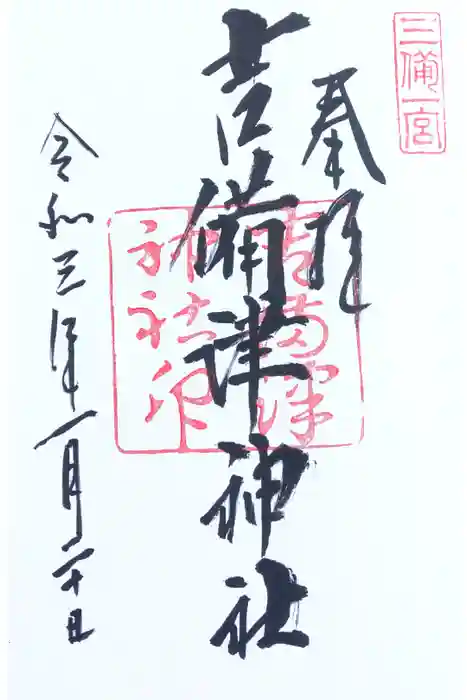 三備一宮
奉拝
吉備津神社
吉備津
神社印
令和三年一月二十日